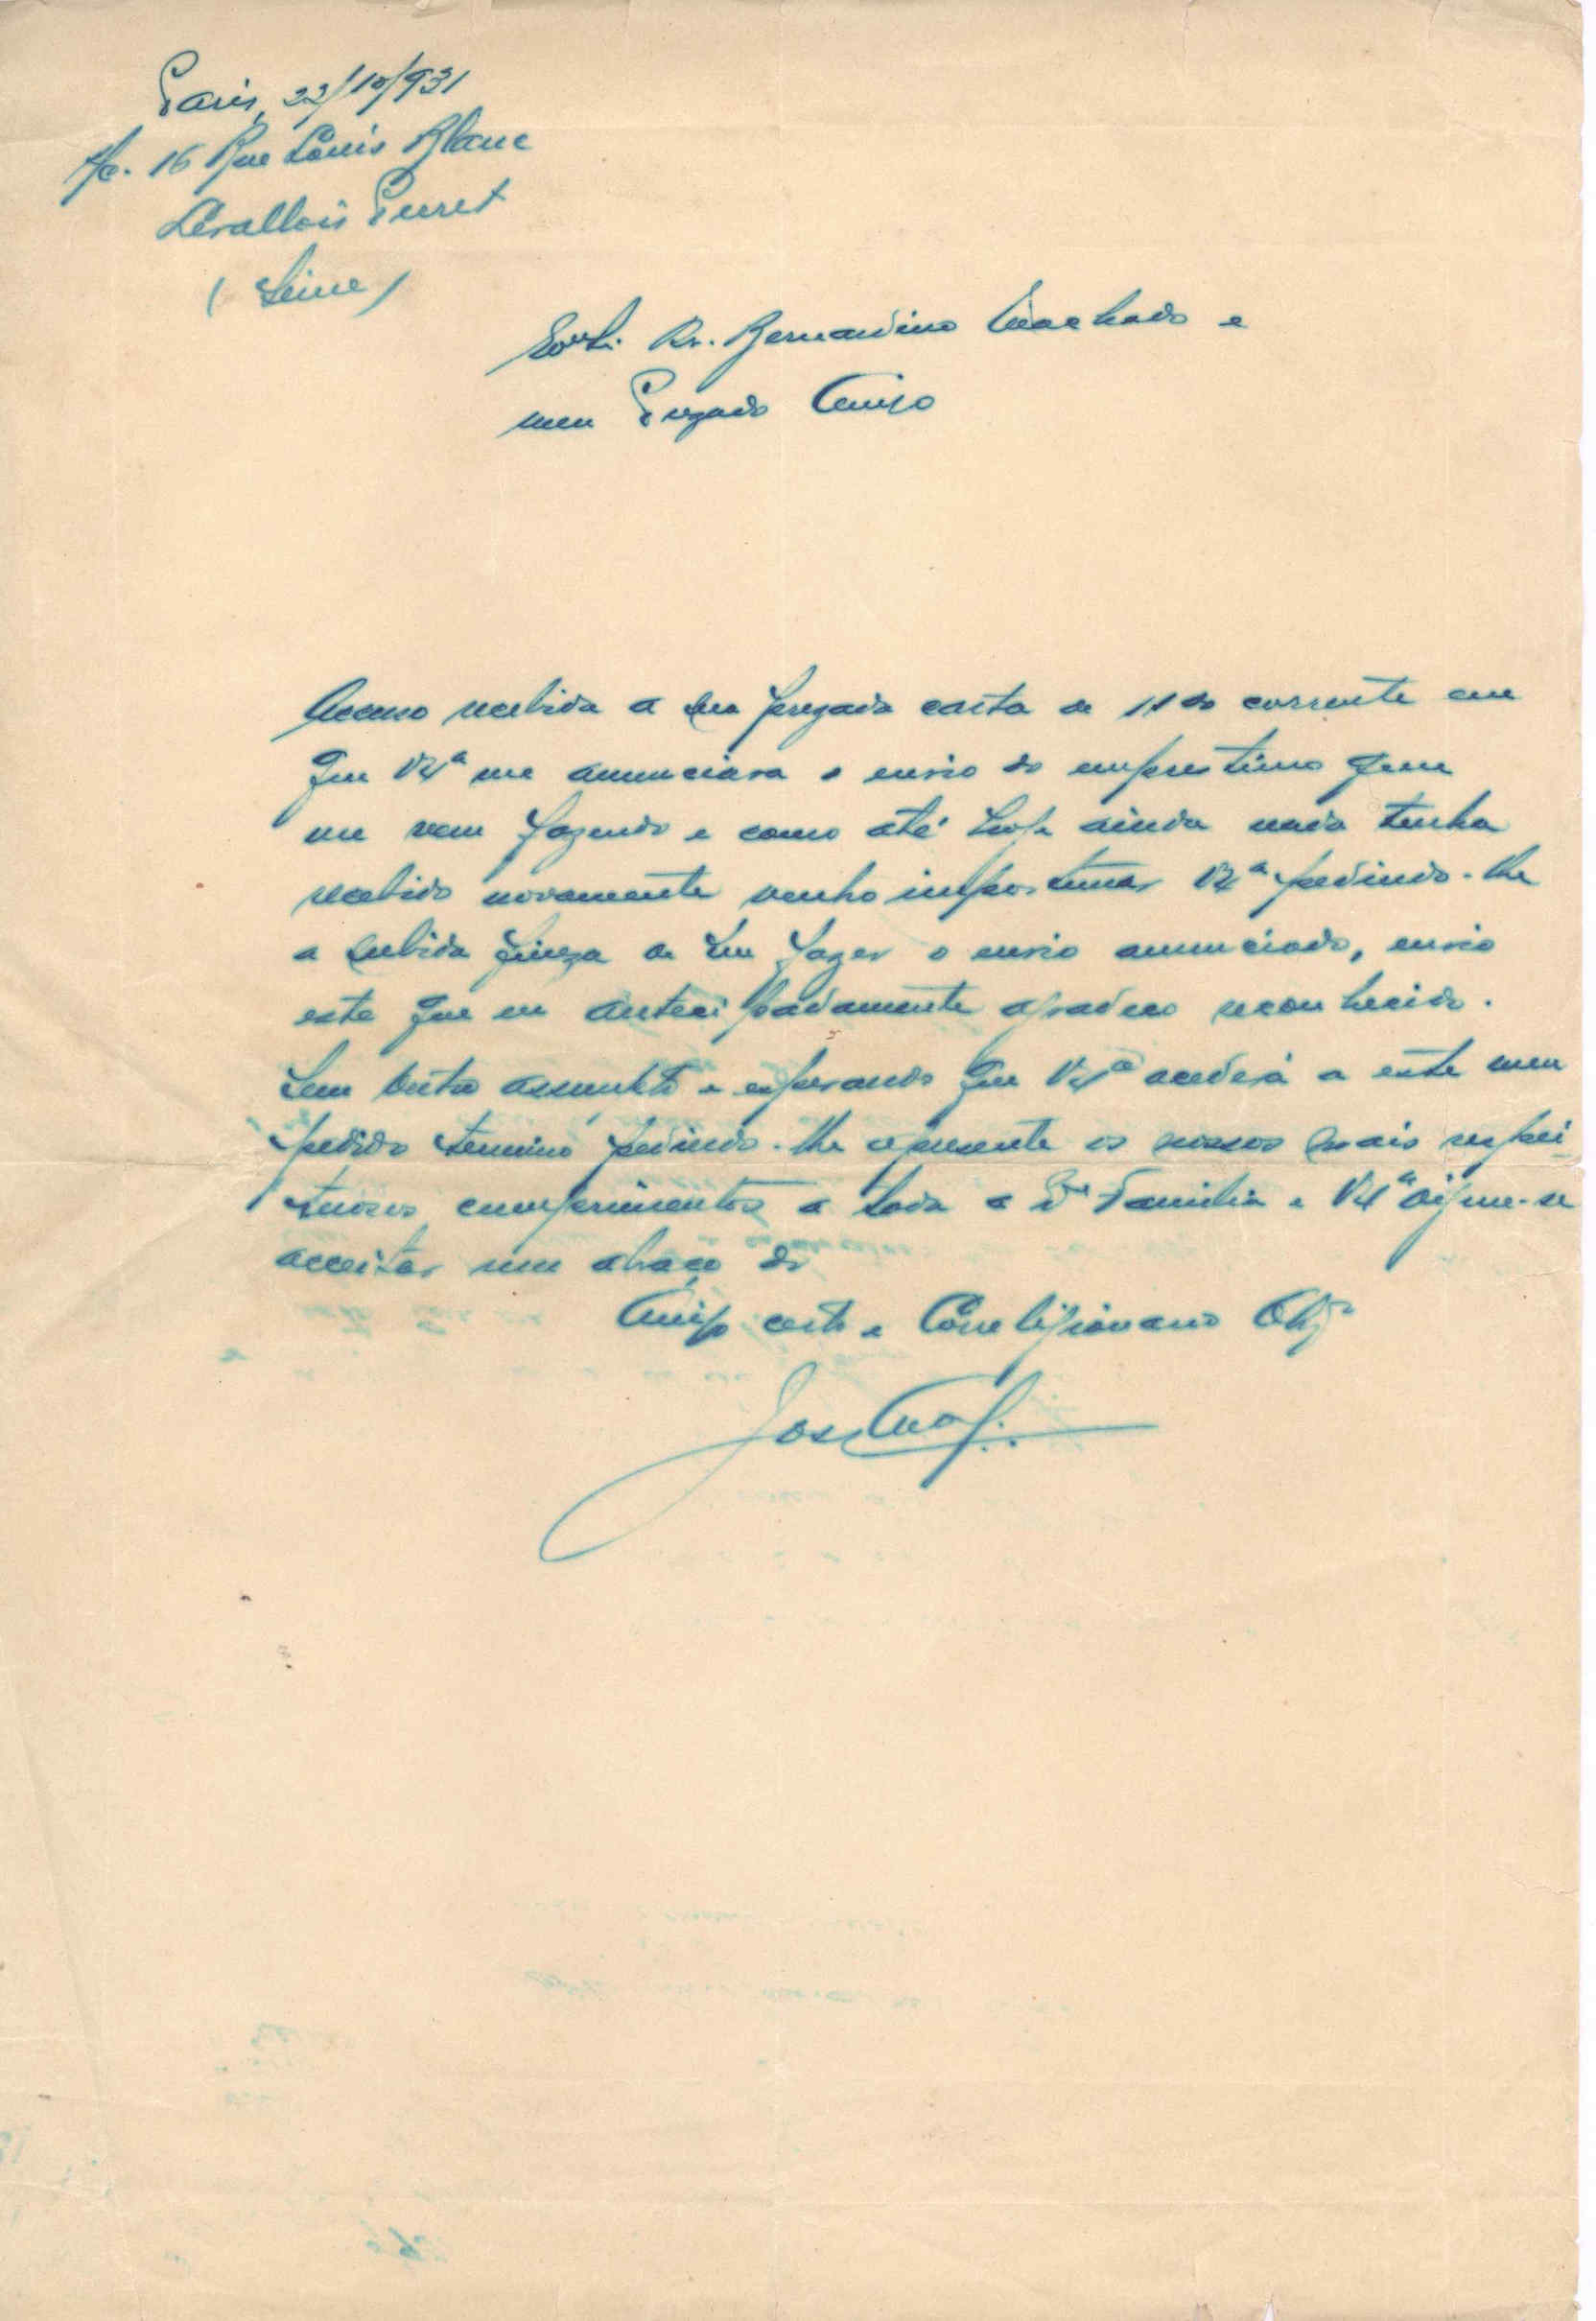 Paris, 22/10/931
16 Rue Louis Blanc
Levallois Perret
(Seine)
Dr. Bernardino Machado e
meu Prezado Amigo
Accuso recebida a sua prezada carta de 11 do corrente em
que V. Exª me anunciava o envio do emprestimo que
me vem fazendo e como até hoje ainda nada tenha
recebido novamente venho importunar V. Exª pedindo-lhe
a subida fineza de me fazer o envio anunciado, envio
este que eu antecipadamente agradeço reconhecido.
Sem outro assunto e esperando que V. Exª acederá a este meu
pedido termino pedindo-lhe apresente os nossos mais respei-
tuosos cumprimentos a toda a Familia e V. Exª digne-se
acceitar um abraço do
Amigo certo e Correligionario Obgº